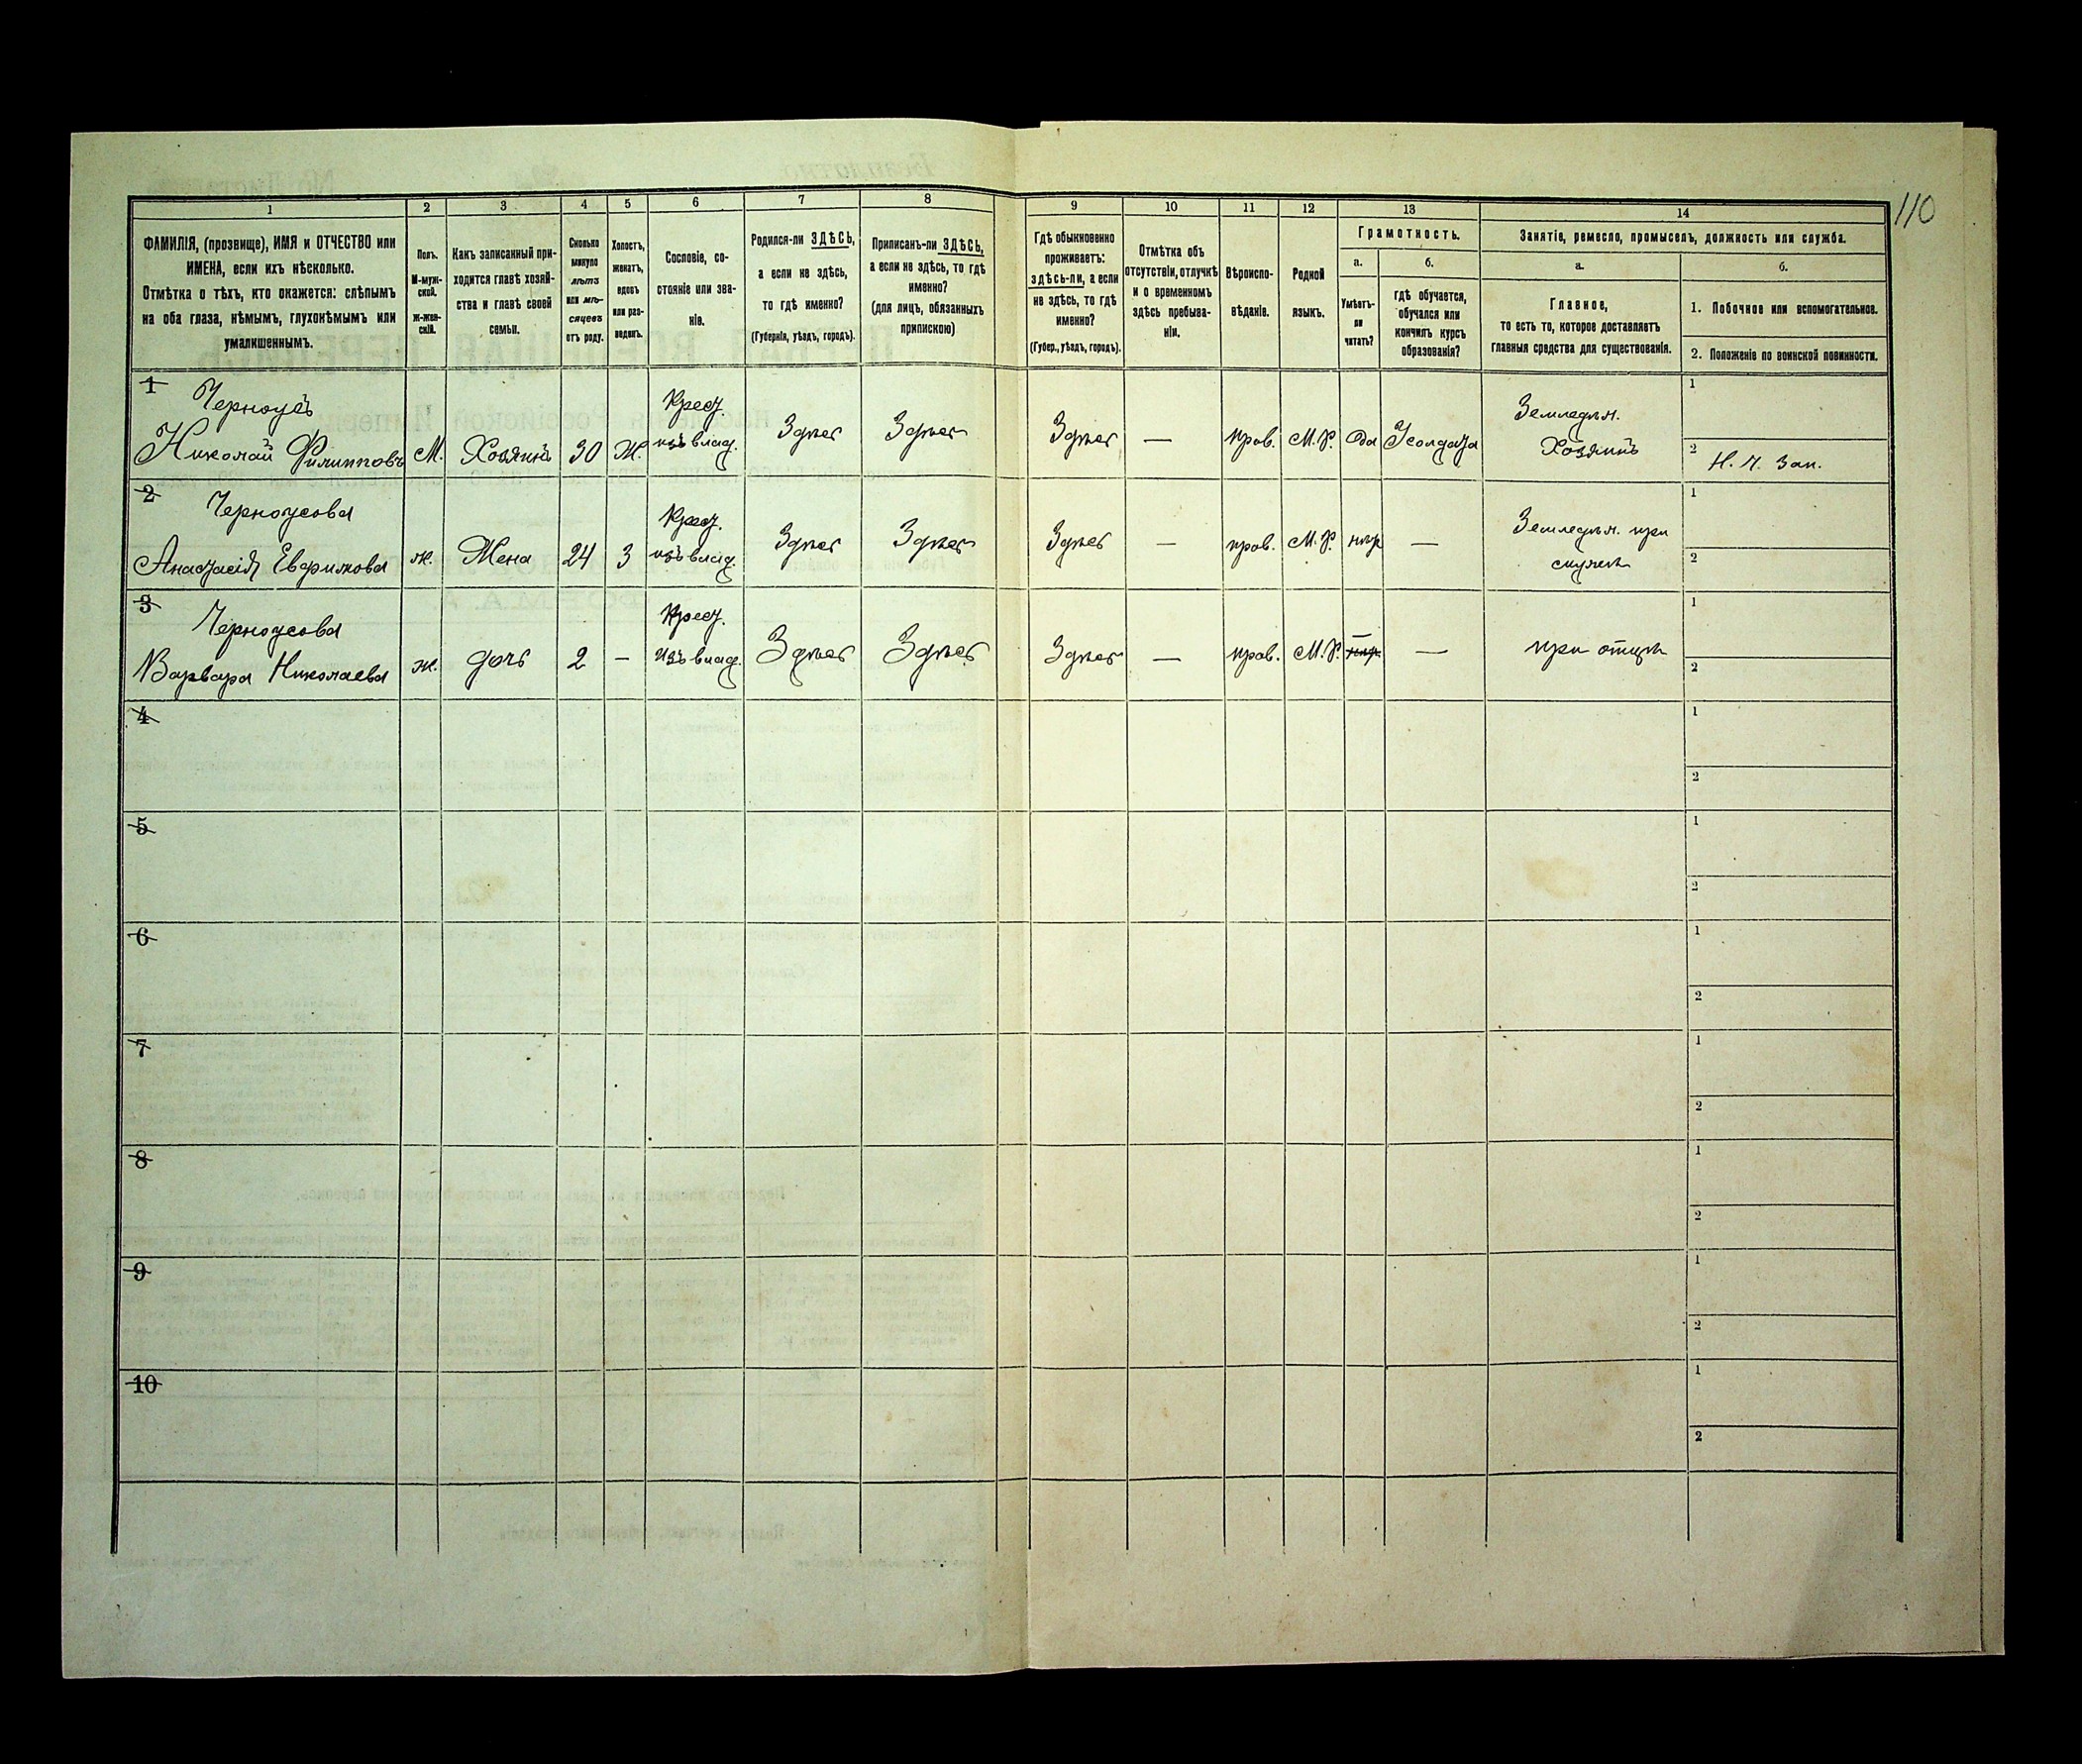 110
1 2 3 4 5 6 7 8 9 10 11 12 13 14
ФАМИЛІЯ, (прозвище), ИМЯ и ОТЧЕСТВО или
ИМЕНА, если ихъ нѣсколько.
Отмѣтка о тѣхъ, кто окажется: слѣпымъ
на оба глаза, нѣмымъ, глухонѣмымъ или
умалишеннымъ.
Полъ.
М-муж-
ской.
Ж-жен-
скій.
Какъ записанный при-
ходится главѣ хозяй-
ства и главѣ своей
семьи.
Сколько
минуло
лѣтъ
или мѣ-
сяцевъ
отъ роду.
Холостъ,
женатъ,
вдовъ
или раз-
веденъ.
Сословіе, со-
стояніе или зва-
ніе.
Родился-ли ЗДѢСЬ,
а если не здѣсь,
то гдѣ именно?
(Губернія, уѣздъ, городъ).
Приписанъ-ли ЗДѢСЬ,
а если не здѣсь, то гдѣ
именно?
(для лицъ, обязанныхъ
припискою)
Гдѣ обыкновенно
проживаетъ:
здѣсь-ли, а если
не здѣсь, то гдѣ
именно?
(Губер., уѣздъ, городъ).
Отмѣтка объ
отсутствіи, отлучкѣ
и о временномъ
здѣсь пребыва-
ніи.
Вѣроиспо-
вѣданіе.
Родной
языкъ.
Грамотность.
а.
Умѣетъ-
ли
читать?
б.
гдѣ обучается,
обучался или
кончилъ курсъ
образованія?
Занятіе, ремесло, промыселъ, должность или служба.
а.
Главное,
то есть то, которое доставляетъ
главныя средства для существованія.
б.
1. Побочное или вспомогательное.
2. Положеніе по воинской повинности.
1
Николай Филипповъ М. Хозяинъ 30 Ж. Крест. изъ влад. Здѣсь Здѣсь Здѣсь — прав. М.Р. да У солдата Земледѣл. Хозяинъ
1
2
2 Черноусова
Анастасія Евфимова ж. Жена 24 З Крест. изъ влад. Здѣсь Здѣсь Здѣсь — прав. М.Р. нѣт — Земледѣл. при
1
2
3 Черноусова
Варвара Николаева ж. дочь 2 — Крест. изъ влад. Здѣсь Здѣсь Здѣсь — прав. М.Р. — — при отцѣ
1
2
4
1
2
5
1
2
6
1
2
7
1
2
8
1
2
9
1
2
10
1
2